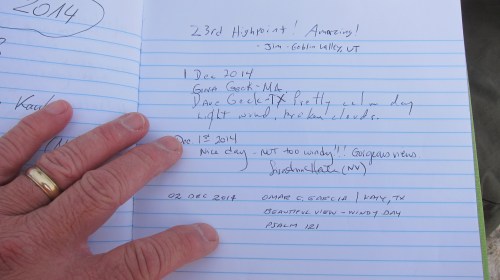 2014
23rd Highpoint! Amazing!
- Jim - Goblin Valley, UT
1 Dec 2014
Gina Geck - MA
Dave Geck - TX Pretty calm day
Light wind, broken clouds.
Dec. 1st 2014
Nice day - NOT too windy!!! Gorgeous views
(NV)
02 DEC 2014 OMAR C. GARCIA | KATY, TX
BEAUTIFUL VIEW - WINDY DAY
PSALM 121